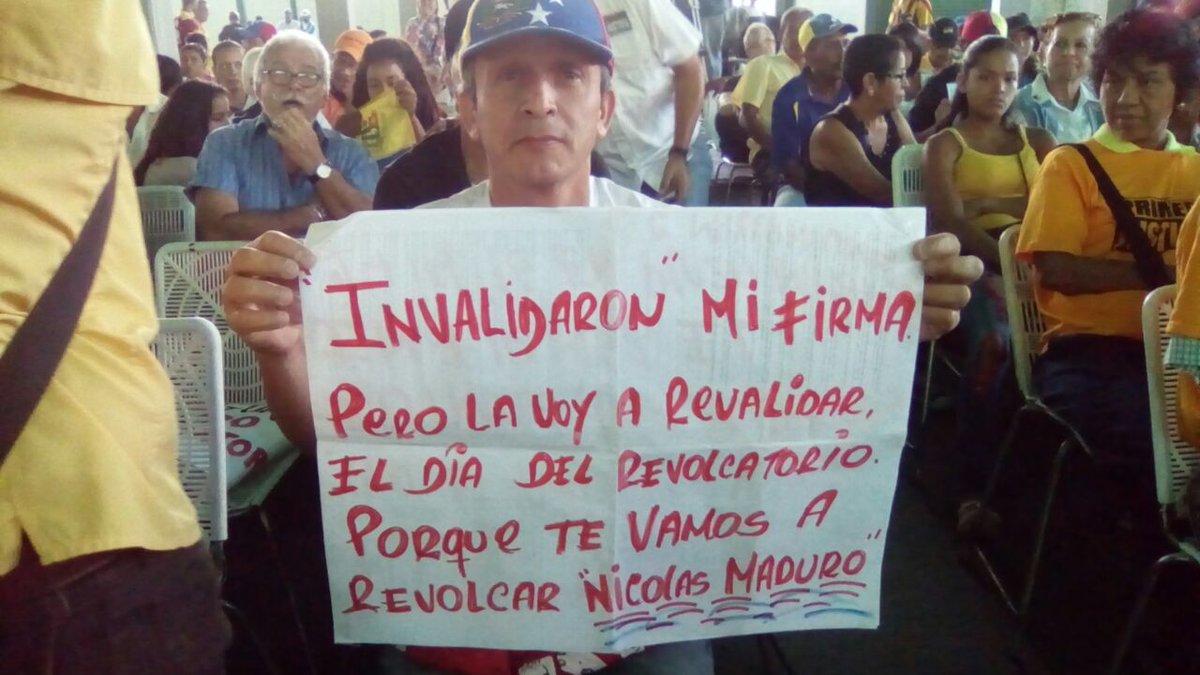 "INVALIDARON" MI FIRMA.
PERO LA VOY A REVALIDAR,
EL DÍA DEL REVOLCATORIO.
PORQUE TE VAMOS A
REVOLCAR "NICOLAS MADURO"
PRIMERO
TOR